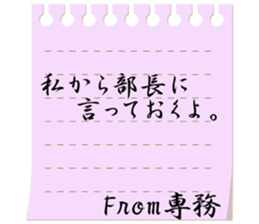 私から部長に
言っておくよ。
From専務